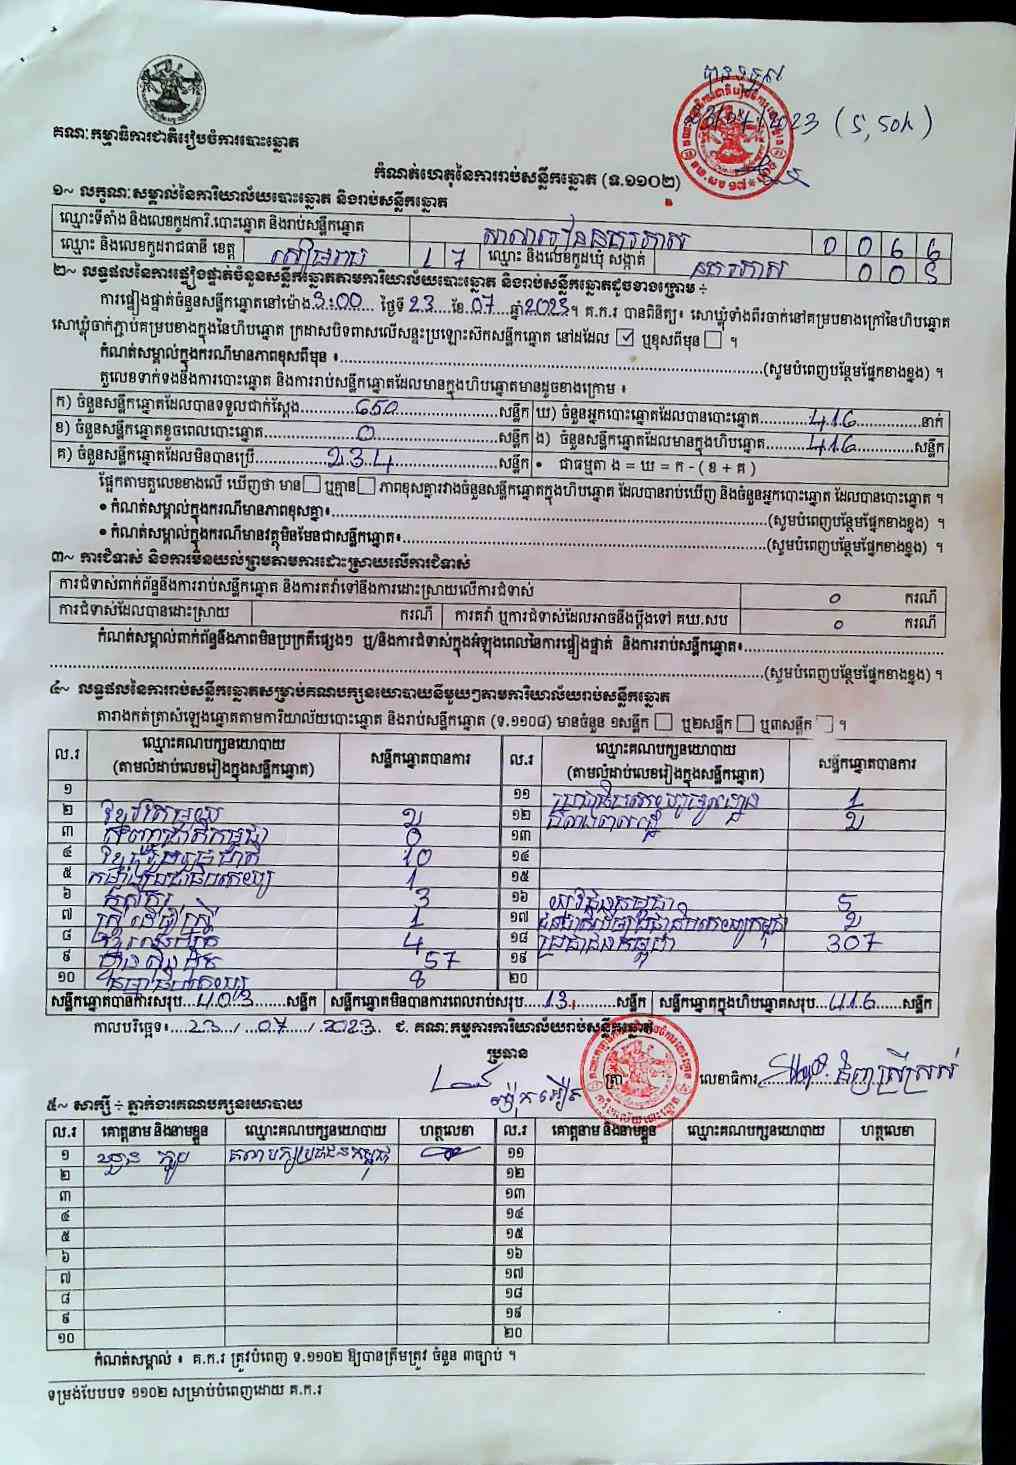 បានទទួល
23/07/2023 (5,50h)
គណៈកម្មាធិការជាតិរៀបចំការបោះឆ្នោត
កំណត់ហេតុនៃការរាប់សន្លឹកឆ្នោត (ទ.១១០២)
១~ លក្ខណៈសម្គាល់នៃការិយាល័យបោះឆ្នោត និងរាប់សន្លឹកឆ្នោត
ឈ្មោះទីតាំង និងលេខកូដការិ.បោះឆ្នោត និងរាប់សន្លឹកឆ្នោត សាលារៀននគរភាស 0 0 6 6
ឈ្មោះ និងលេខកូដរាជធានី ខេត្ត សៀមរាប 1 7 ឈ្មោះ និងលេខកូដឃុំ សង្កាត់ នគរភាស 0 0 5
២~ លទ្ធផលនៃការផ្ទៀងផ្ទាត់ចំនួនសន្លឹកឆ្នោតតាមការិយាល័យបោះឆ្នោត និងរាប់សន្លឹកឆ្នោតដូចខាងក្រោម ÷
ការផ្ទៀងផ្ទាត់ចំនួនសន្លឹកឆ្នោតនៅម៉ោង 3:00 ថ្ងៃទី 23 ខែ 07 ឆ្នាំ 2023 ។ គ.ក.រ បានពិនិត្យ៖ សោឃ្លុំទាំងពីរចាក់នៅគម្របខាងក្រៅនៃហិបឆ្នោត
សោឃ្លុំចាក់ភ្ជាប់គម្របខាងក្នុងនៃហិបឆ្នោត ក្រដាសបិទពាសលើសន្ទះប្រឡោះស៊កសន្លឹកឆ្នោត នៅដដែល ☑ ឬខុសពីមុន ☐ ។
កំណត់សម្គាល់ក្នុងករណីមានភាពខុសពីមុន ៖ (សូមបំពេញបន្ថែមផ្នែកខាងខ្នង) ។
តួលេខទាក់ទងនឹងការបោះឆ្នោត និងការរាប់សន្លឹកឆ្នោតដែលមានក្នុងហិបឆ្នោតមានដូចខាងក្រោម ៖
ក) ចំនួនសន្លឹកឆ្នោតដែលបានទទួលជាក់ស្តែង 650 សន្លឹក ឃ) ចំនួនអ្នកបោះឆ្នោតដែលបានបោះឆ្នោត 416 នាក់
ខ) ចំនួនសន្លឹកឆ្នោតខូចពេលបោះឆ្នោត 0 សន្លឹក ង) ចំនួនសន្លឹកឆ្នោតដែលមានក្នុងហិបឆ្នោត 416 សន្លឹក
គ) ចំនួនសន្លឹកឆ្នោតដែលមិនបានប្រើ 234 សន្លឹក • ជាធម្មតា ង = ឃ = ក - ( ខ + គ )
ផ្អែកតាមតួលេខខាងលើ ឃើញថា មាន ☐ ឬគ្មាន ☐ ភាពខុសគ្នារវាងចំនួនសន្លឹកឆ្នោតក្នុងហិបឆ្នោត ដែលបានរាប់ឃើញ និងចំនួនអ្នកបោះឆ្នោត ដែលបានបោះឆ្នោត ។
• កំណត់សម្គាល់ក្នុងករណីមានភាពខុសគ្នា៖ (សូមបំពេញបន្ថែមផ្នែកខាងខ្នង) ។
• កំណត់សម្គាល់ក្នុងករណីមានវត្ថុមិនមែនជាសន្លឹកឆ្នោត៖ (សូមបំពេញបន្ថែមផ្នែកខាងខ្នង) ។
៣~ ការជំទាស់ និងការមិនយល់ព្រមតាមការដោះស្រាយលើការជំទាស់
ការជំទាស់ពាក់ព័ន្ធនឹងការរាប់សន្លឹកឆ្នោត និងការតវ៉ាទៅនឹងការដោះស្រាយលើការជំទាស់ 0 ករណី
ការជំទាស់ដែលបានដោះស្រាយ ករណី ការតវ៉ា ឬការជំទាស់ដែលអាចនឹងប្តឹងទៅ គឃ.សប 0 ករណី
កំណត់សម្គាល់ពាក់ព័ន្ធនឹងភាពមិនប្រក្រតីផ្សេងៗ ឬ/និងការជំទាស់ក្នុងអំឡុងពេលនៃការផ្ទៀងផ្ទាត់ និងការរាប់សន្លឹកឆ្នោត៖
(សូមបំពេញបន្ថែមផ្នែកខាងខ្នង) ។
៤~ លទ្ធផលនៃការរាប់សន្លឹកឆ្នោតសម្រាប់គណបក្សនយោបាយនីមួយៗតាមការិយាល័យរាប់សន្លឹកឆ្នោត
តារាងកត់ត្រាសំឡេងឆ្នោតតាមការិយាល័យបោះឆ្នោត និងរាប់សន្លឹកឆ្នោត (ទ.១១០៨) មានចំនួន ១សន្លឹក ☐ ឬ២សន្លឹក ☐ ឬ៣សន្លឹក ☐ ។
ល.រ ឈ្មោះគណបក្សនយោបាយ (តាមលំដាប់លេខរៀងក្នុងសន្លឹកឆ្នោត) សន្លឹកឆ្នោតបានការ ល.រ ឈ្មោះគណបក្សនយោបាយ (តាមលំដាប់លេខរៀងក្នុងសន្លឹកឆ្នោត) សន្លឹកឆ្នោតបានការ
១ ១១ 1
២ ខ្មែរតែមួយ 2 ១២ 2
៣ សញ្ជាតិកម្ពុជា 0 ១៣
៤ ខ្មែររួបរួមជាតិ 10 ១៤
៥ កម្លាំងប្រជាធិបតេយ្យ 1 ១៥
៦ កសិករ 3 ១៦ យុវជនកម្ពុជា 5
៧ ស្ត្រីដើម្បីស្ត្រី 1 ១៧ 2
៨ 4 ១៨ ប្រជាជនកម្ពុជា 307
៩ ហ្វ៊ុនស៊ិនប៉ិច 57 ១៩
១០ ធម្មាធិបតេយ្យ 8 ២០
សន្លឹកឆ្នោតបានការសរុប 403 សន្លឹក សន្លឹកឆ្នោតមិនបានការពេលរាប់សរុប 13 សន្លឹក សន្លឹកឆ្នោតក្នុងហិបឆ្នោតសរុប 416 សន្លឹក
កាលបរិច្ឆេទ៖ 23 / 07 / 2023 ជ. គណៈកម្មការការិយាល័យរាប់សន្លឹកឆ្នោត
ប្រធាន
ត្រា លេខាធិការ
៥~ សាក្សី ÷ ភ្នាក់ងារគណបក្សនយោបាយ
ល.រ គោត្តនាម និងនាមខ្លួន ឈ្មោះគណបក្សនយោបាយ ហត្ថលេខា ល.រ គោត្តនាម និងនាមខ្លួន ឈ្មោះគណបក្សនយោបាយ ហត្ថលេខា
១ គណបក្សប្រជាជនកម្ពុជា ១១
២ ១២
៣ ១៣
៤ ១៤
៥ ១៥
៦ ១៦
៧ ១៧
៨ ១៨
៩ ១៩
១០ ២០
កំណត់សម្គាល់ ៖ គ.ក.រ ត្រូវបំពេញ ទ.១១០២ ឱ្យបានត្រឹមត្រូវ ចំនួន ៣ច្បាប់ ។
ទម្រង់បែបបទ ១១០២ សម្រាប់បំពេញដោយ គ.ក.រ